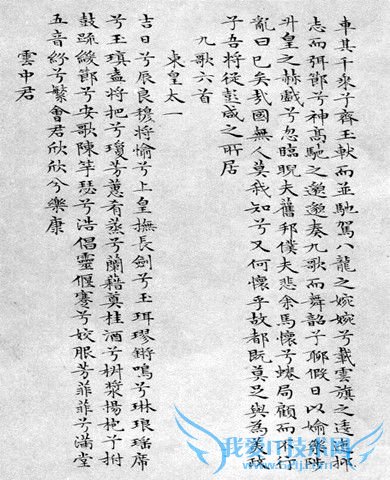 車其千乘兮齊玉軑而並馳駕八龍之婉婉兮載雲旗之逶抑
志而弭節兮神高馳之邈邈奏九歌而舞韶兮聊假日以媮樂陟
升皇之赫戲兮忽臨睨夫舊邦僕夫悲余馬懷兮蜷局顧而不行
亂曰已矣哉國無人莫我知兮又何懷乎故都既莫足與為美政
兮吾將從彭咸之所居
九歌六首
東皇太一
吉日兮辰良穆將愉兮上皇撫長劍兮玉珥璆鏘鳴兮琳琅瑤席
兮玉瑱盍將把兮瓊芳蕙肴蒸兮蘭藉奠桂酒兮椒漿揚枹兮拊
鼓疏緩節兮安歌陳竽瑟兮浩倡靈偃蹇兮姣服芳菲菲兮滿堂
五音紛兮繁會君欣欣兮樂康
雲中君
我爱IT技术网